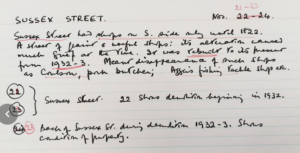 21-23
SUSSEX STREET. Nos. 22-24.
Sussex Street had shops on S. side only until 1822.
A street of minor & useful shops: its alteration caused
much grief at the time. It was rebuilt to its present
form 1932-3. Meant disappearance of such shops
as Coulson, pork butcher; Aggis fishing tackle shop etc.
22
23 Sussex Street. 22 Shows demolition beginning in 1932.
23 Back of Sussex St. during demolition 1932-3. Shows
condition of property.